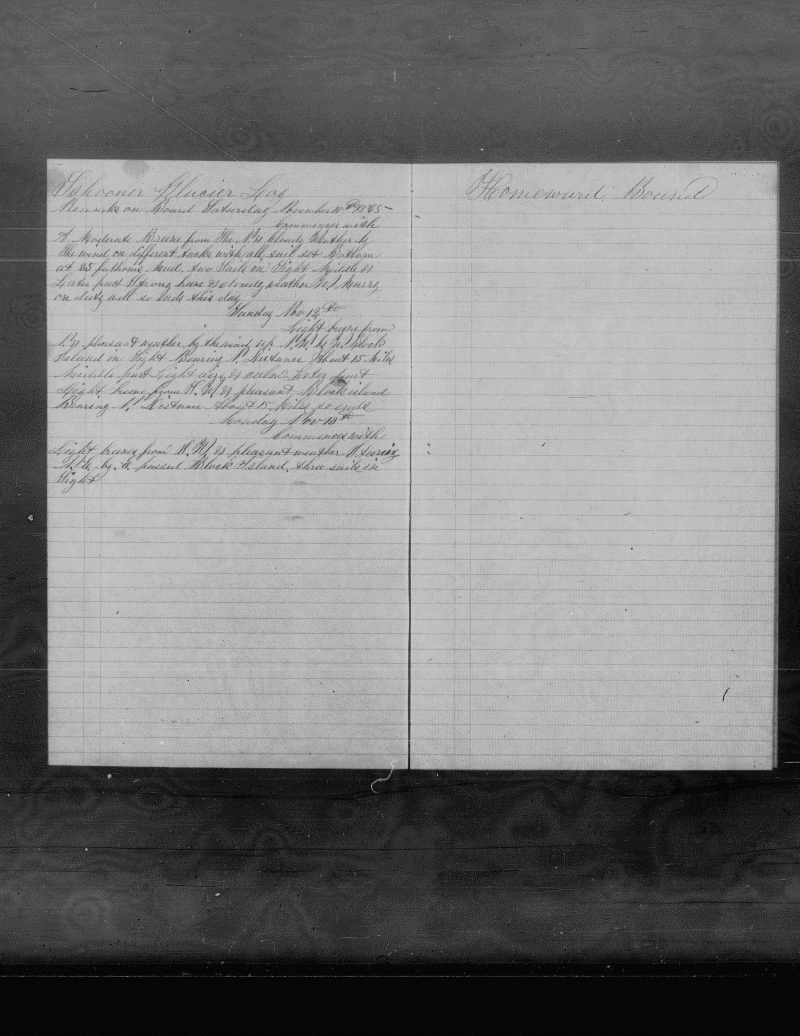 Schooner Glacier Log
Remarks on Board Saturday November 11th 1865
Commences with
A Moderate Breeze from The N & Cloudy Weather by
The wind on different tacks with all sail set Bottom
at 35 fathoms Mud. two Sails in Sight Middle &
Later part Strong breeze & cloudy weather
on duty will so Ends this day
Sunday Nov 12th
Light breeze from
N & pleasant weather by the wind up N.W. by W. Block
Island in Sight Bearing N. Distance About 15 Miles
Middle part Light airs & calm Later part
Light breeze from & pleasant, Block island
Bearing N. Distance About 15 Miles so ends
Monday Nov 13th
Commences with
Light breeze from & pleasant weather Steering
N.E. by E. passed Block Island. three sails in
Sight
Homeward Bound